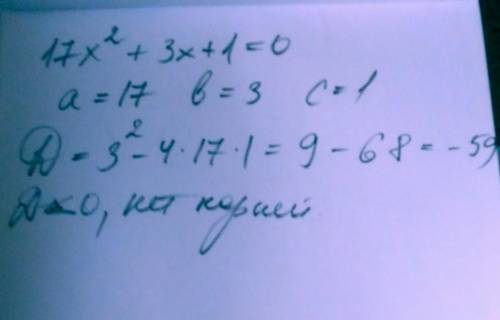 17x² + 3x + 1 = 0
a = 17 b = 3 c = 1
D = 3² - 4 · 17 · 1 = 9 - 68 = -59
D < 0, нет корней